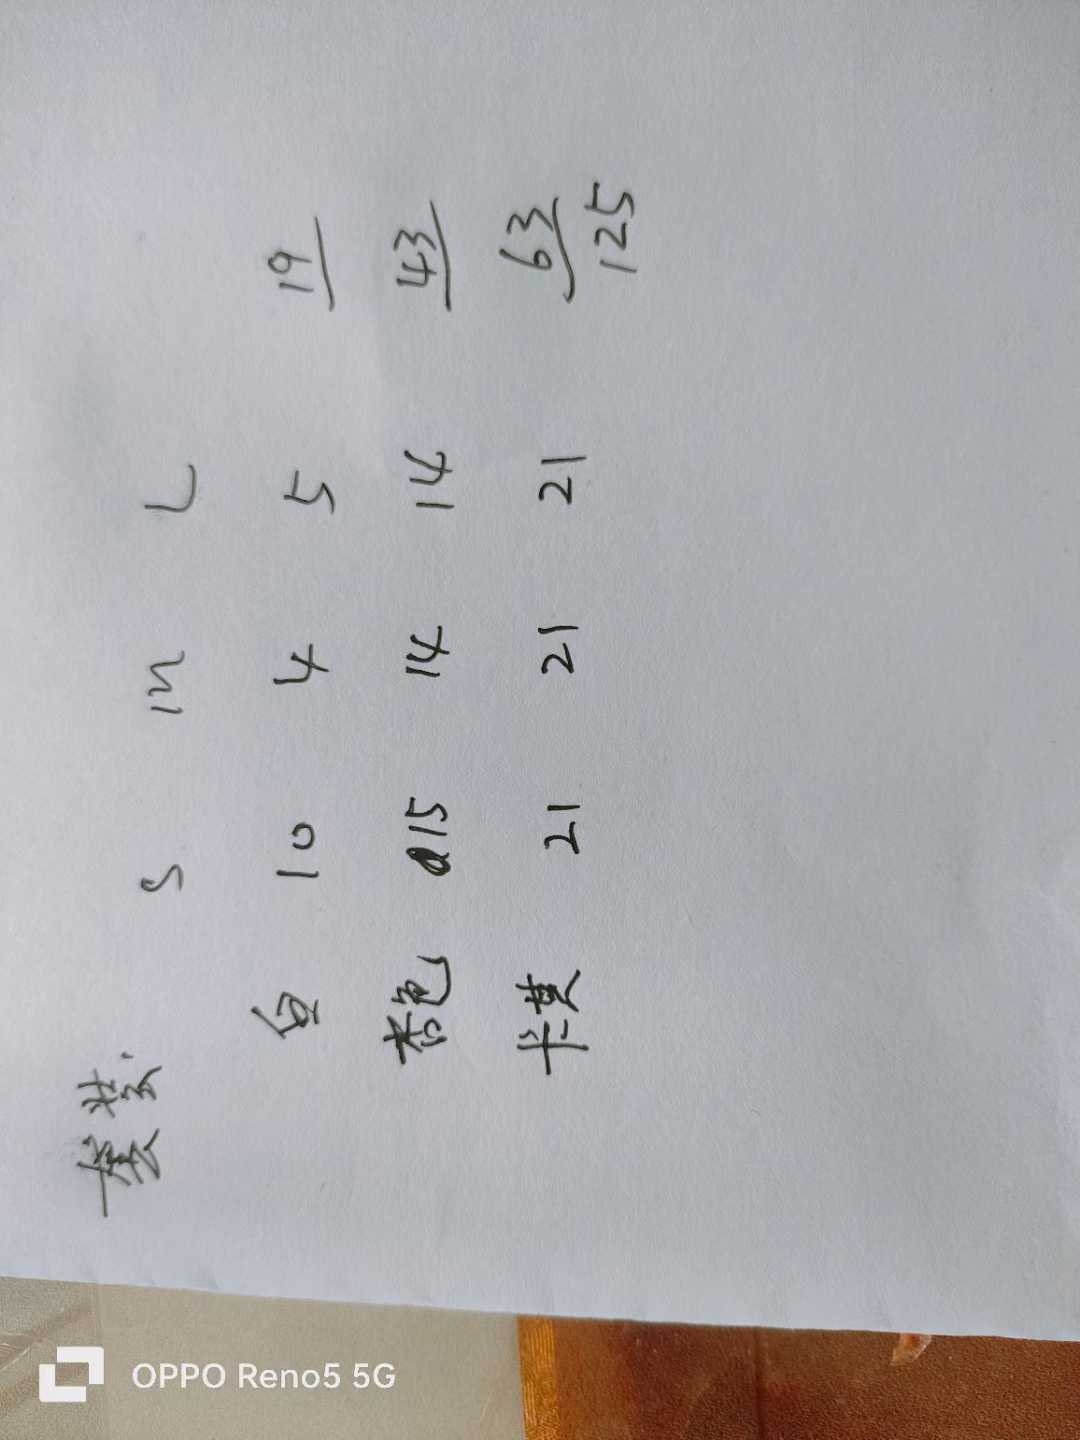 套装.
S m L
白 10 4 5 19
杏色 15 14 14 43
卡其 21 21 21 63
125
OPPO Reno5 5G